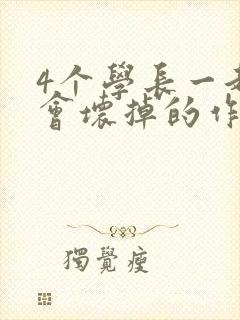 4个學長一
會壞掉的作
獨覺瘦